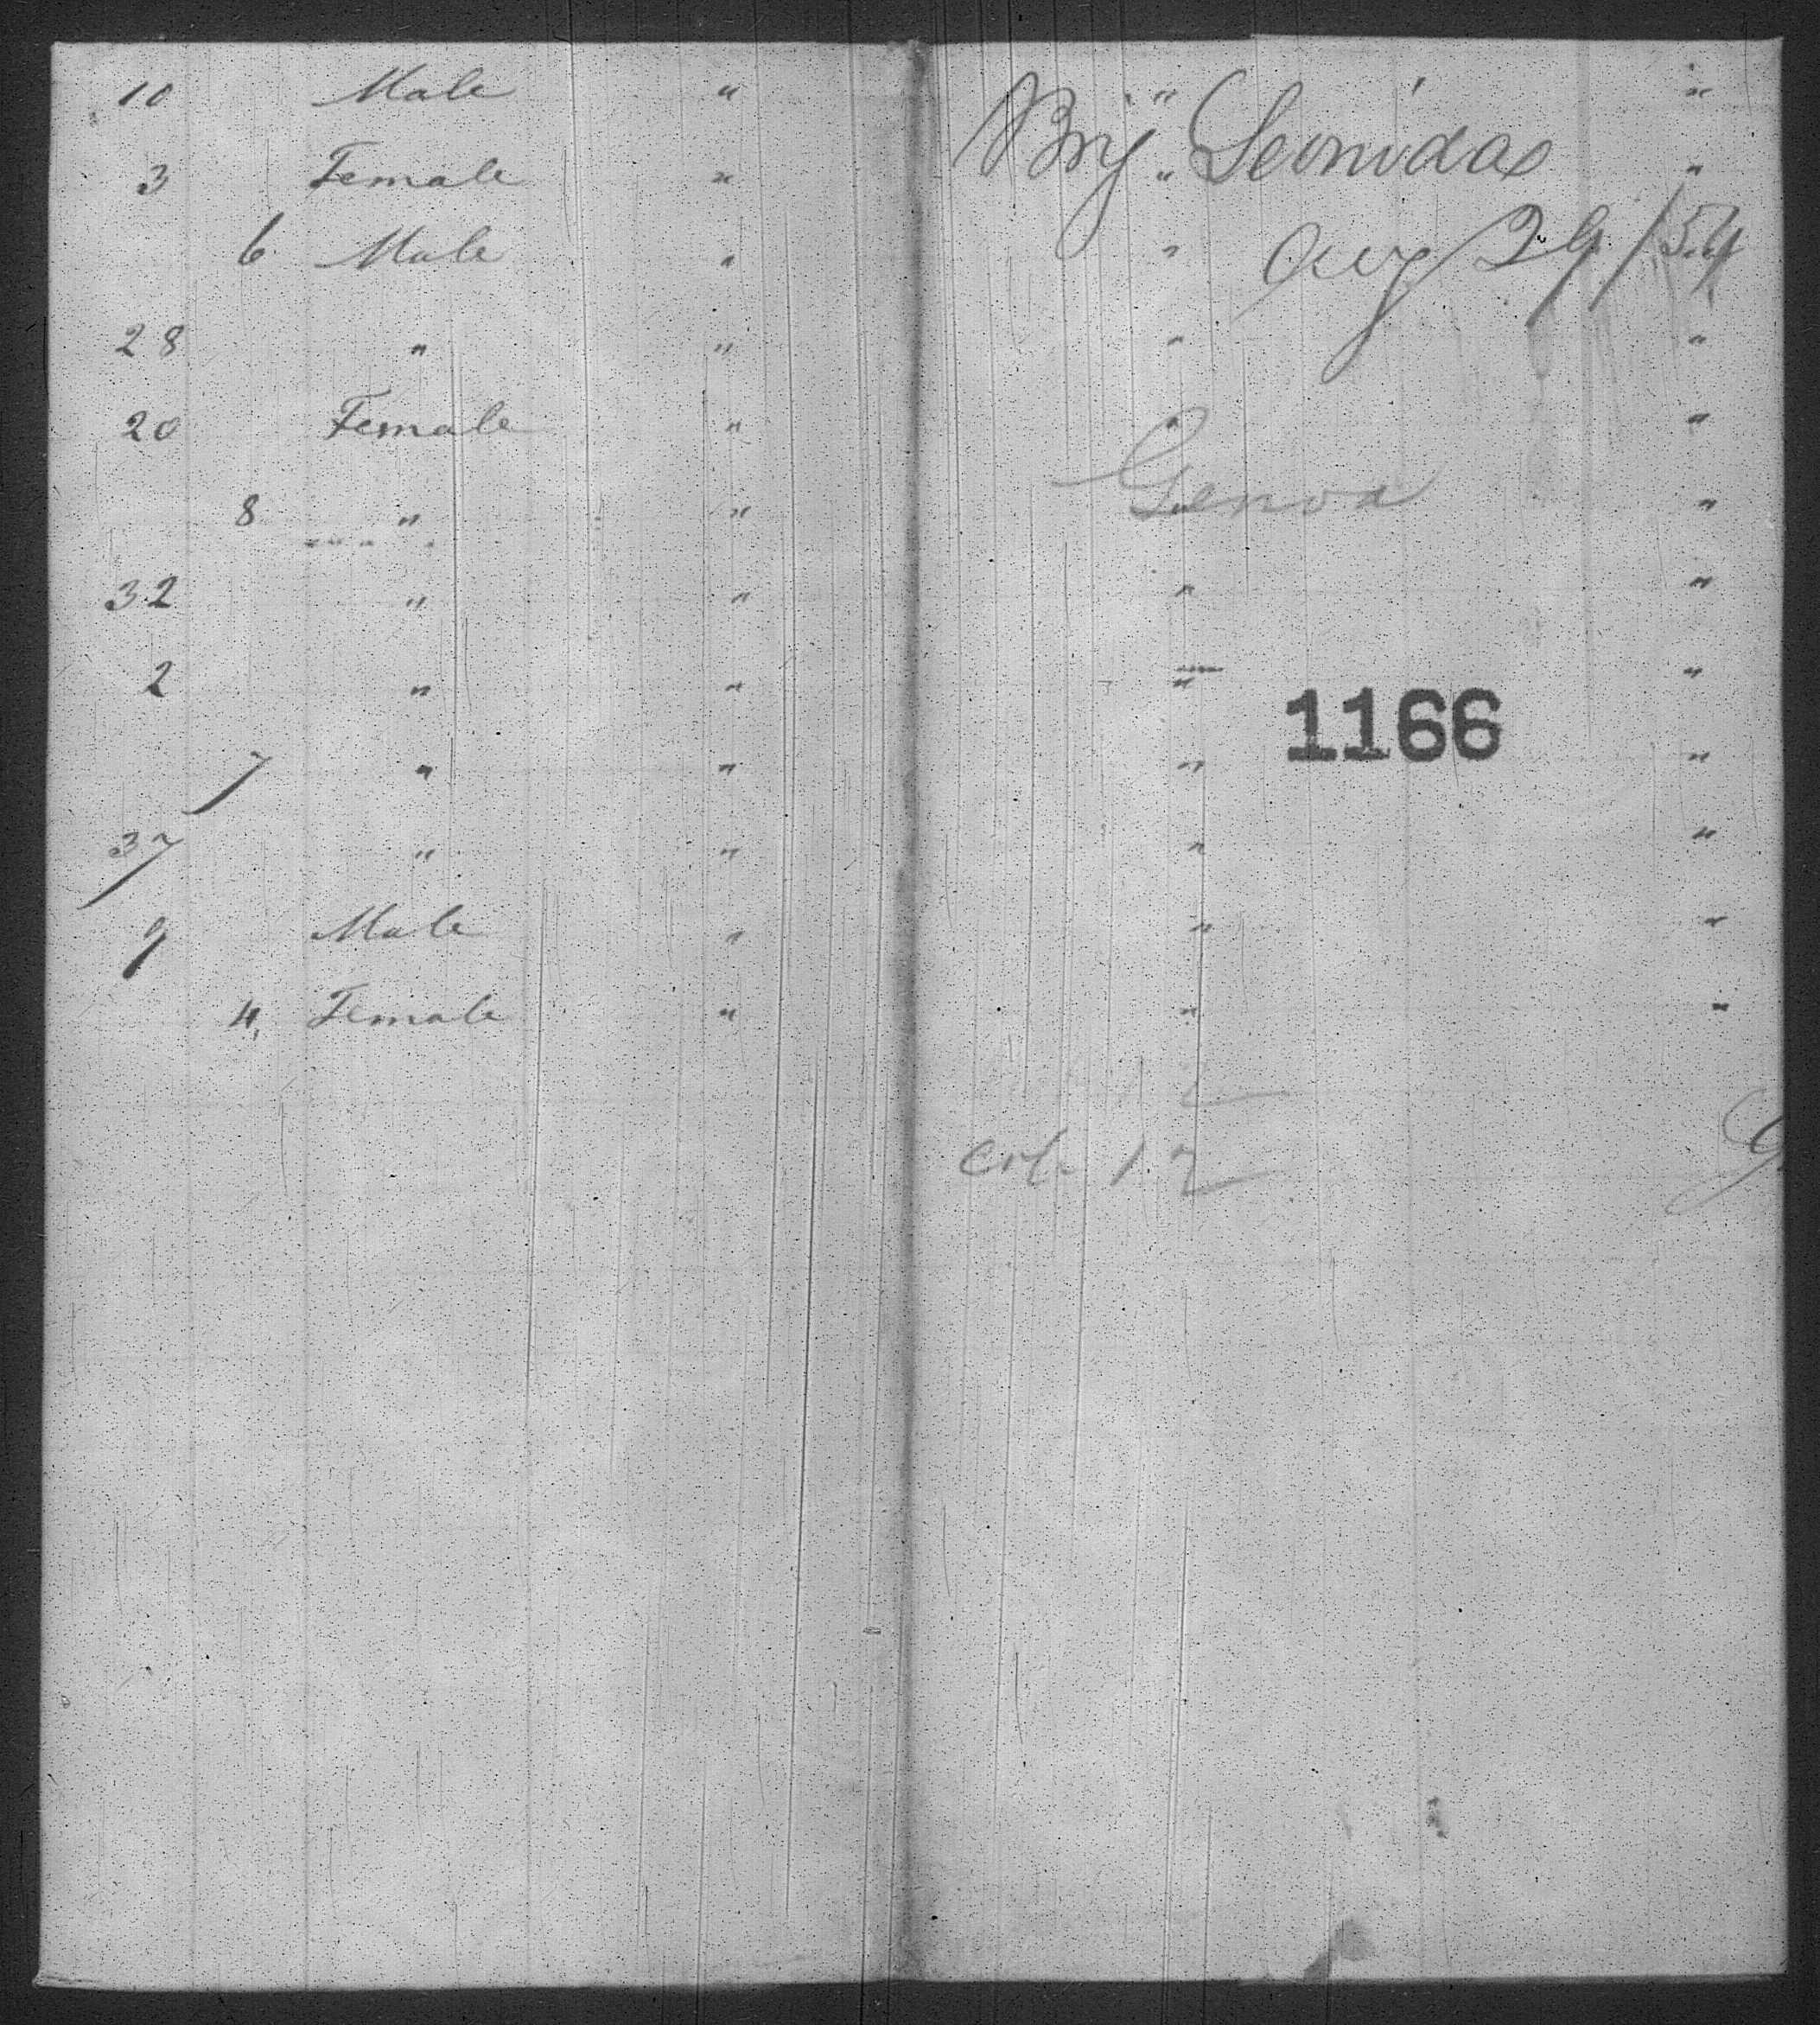 10 Male " " "
3 Female " " "
Brig Leonidas
6 Male " "
Aug 29/54
28 " " " "
20 Female " " "
Genoa
8 " " "
32 " " " "
2 " " " "
1166
7 " " " "
37 " " " "
9 Male " " "
4 Female " " "
12